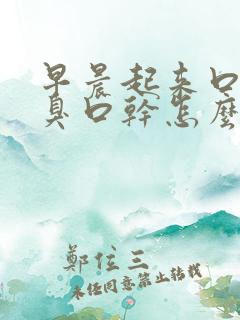 早晨起来口
臭口幹怎麼
鄭位三
未经同意禁止转载